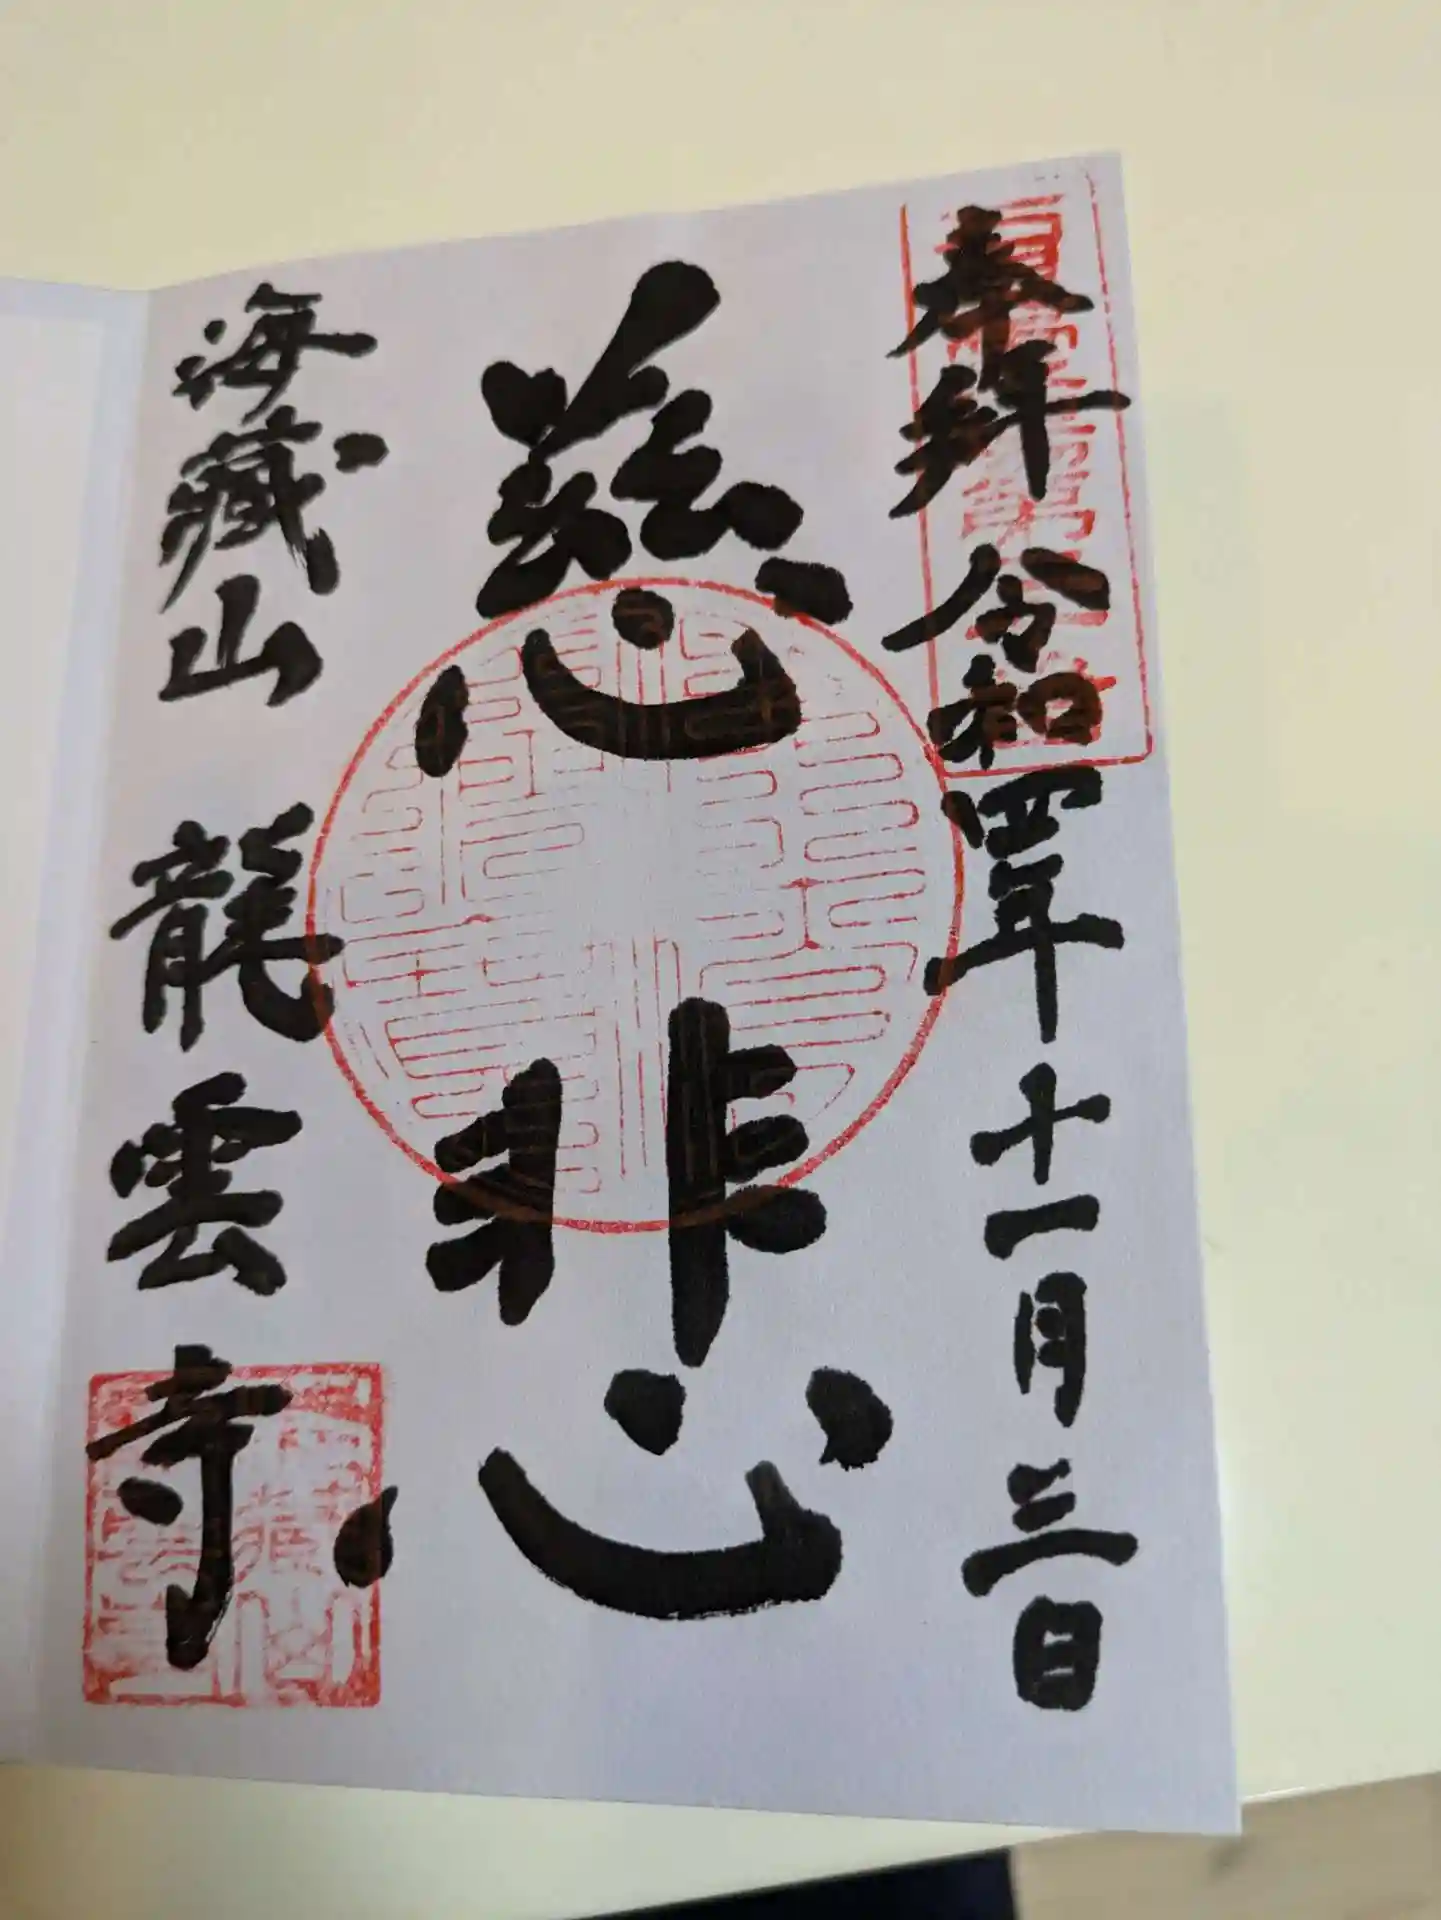 奉拜 令和四年十一月三日
慈悲
海藏山 龍雲寺